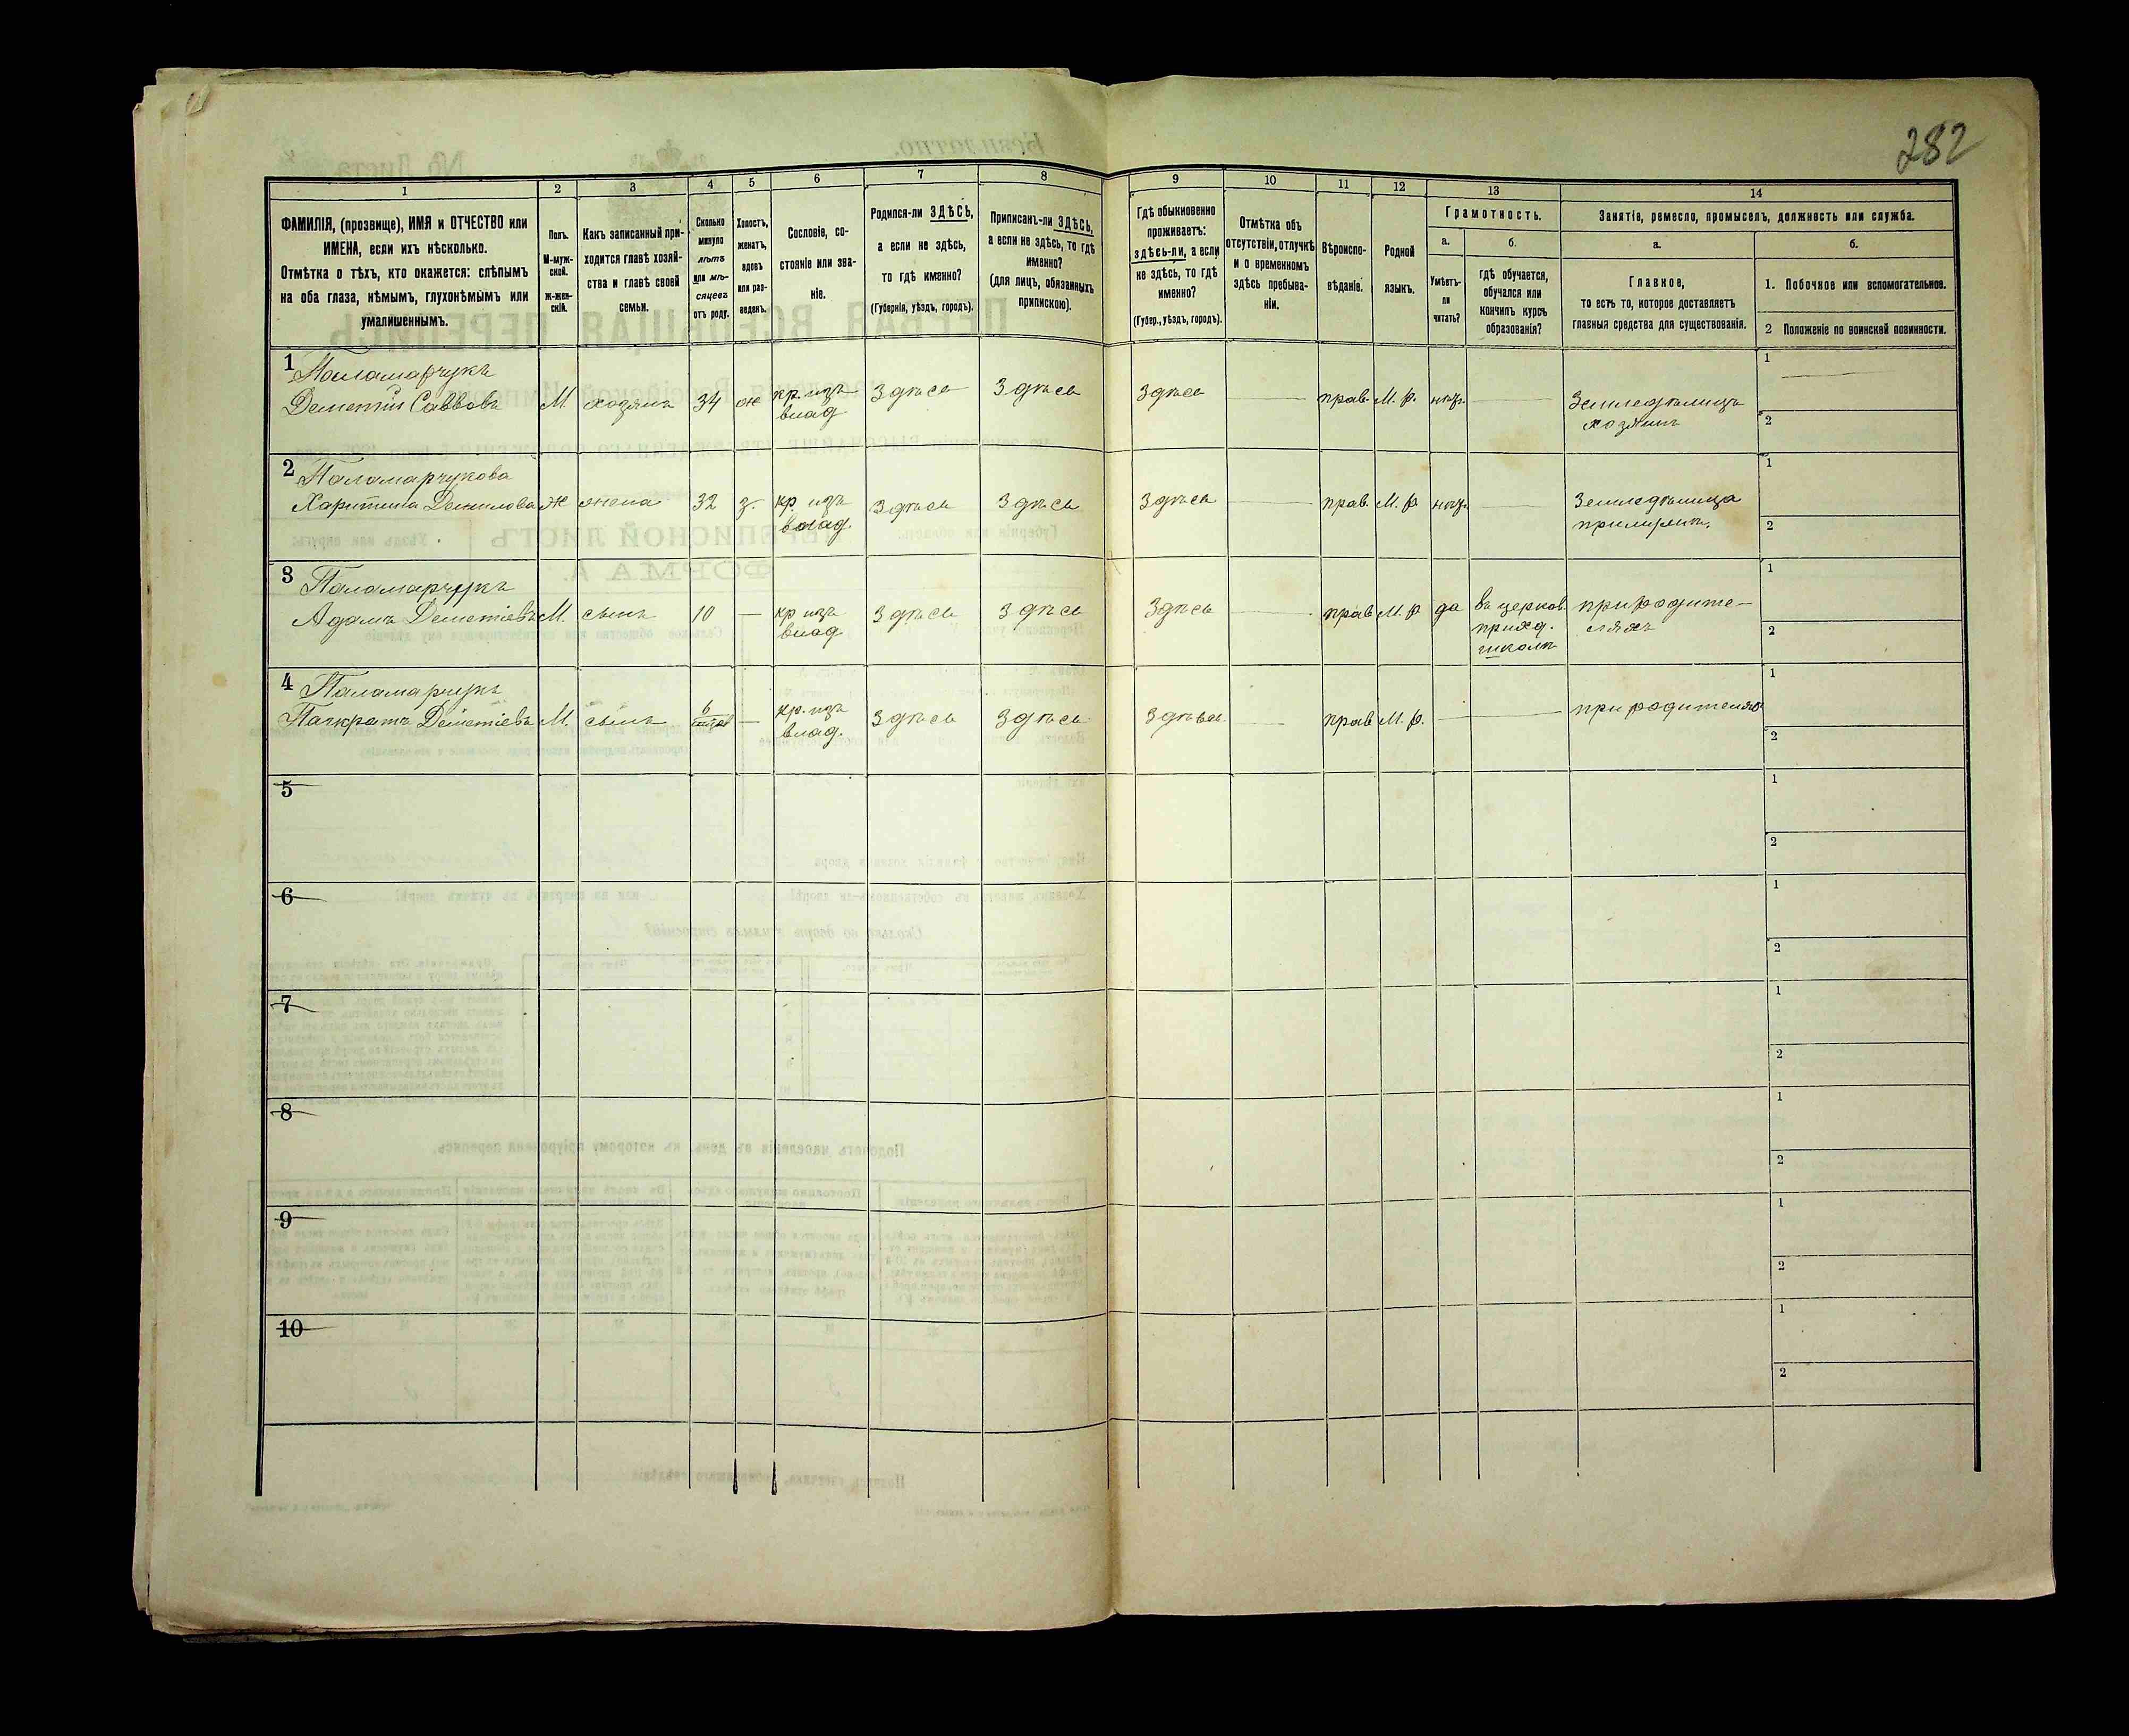 282
1 2 3 4 5 6 7 8 9 10 11 12 13 14
ФАМИЛІЯ, (прозвище), ИМЯ и ОТЧЕСТВО или
ИМЕНА, если ихъ нѣсколько.
Отмѣтка о тѣхъ, кто окажется: слѣпымъ
на оба глаза, нѣмымъ, глухонѣмымъ или
умалишеннымъ.
Полъ.
М-муж-
ской.
ж-жен-
скій.
Какъ записанный при-
ходится главѣ хозяй-
ства и главѣ своей
семьи.
Сколько
минуло
лѣтъ
или мѣ-
сяцевъ
отъ роду.
Холостъ,
женатъ,
вдовъ
или раз-
веденъ.
Сословіе, со-
стояніе или зва-
ніе.
Родился-ли ЗДѢСЬ,
а если не здѣсь,
то гдѣ именно?
(Губернія, уѣздъ, городъ).
Приписанъ-ли ЗДѢСЬ,
а если не здѣсь, то гдѣ
именно?
(для лицъ, обязанныхъ
припискою).
Гдѣ обыкновенно
проживаетъ:
здѣсь-ли, а если
не здѣсь, то гдѣ
именно?
(Губер., уѣздъ, городъ).
Отмѣтка объ
отсутствіи, отлучкѣ
и о временномъ
здѣсь пребыва-
ніи.
Вѣроиспо-
вѣданіе.
Родной
языкъ.
Грамотность.
а.
Умѣетъ-
ли
читать?
б.
Гдѣ обучается,
обучался или
кончилъ курсъ
образованія?
Занятіе, ремесло, промыселъ, должность или служба.
а.
Главное,
то есть то, которое доставляетъ
главныя средства для существованія.
б.
1. Побочное или вспомогательное.
2 Положеніе по воинской повинности.
1 Паламарчукъ
Деметій Саввовъ М. хозяинъ 34 ж кр. изъ Здѣсь Здѣсь Здѣсь прав. М. р. нѣтъ Земледѣлецъ 1
влад хозяинъ 2
2 Паламарчукова 1
Харитина Данилова Ж жена 32 з. кр. изъ Здѣсь Здѣсь Здѣсь прав. М. р. нѣтъ
влад. 2
3 Паламарчукъ 1
Адамъ Деметіевъ М. сынъ 10 — кр изъ Здѣсь Здѣсь Здѣсь прав М. р да въ церков. при родите-
влад приход. ляхъ 2
школѣ
4 Паламарчукъ 1
Панкратъ Деметіевъ М. сынъ 6 — кр. изъ Здѣсь Здѣсь Здѣсь прав М. р. при родителяхъ
влад. 2
5 1
2
6 1
2
7 1
2
8 1
2
9 1
2
10 1
2